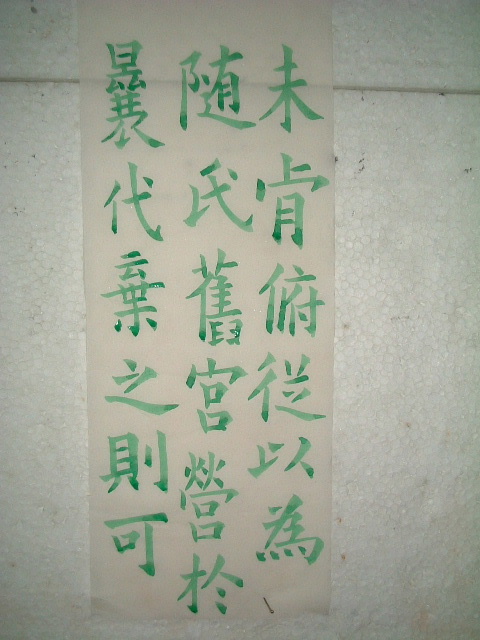 未肯俯從以為
随氏舊宮營於
曩代棄之則可